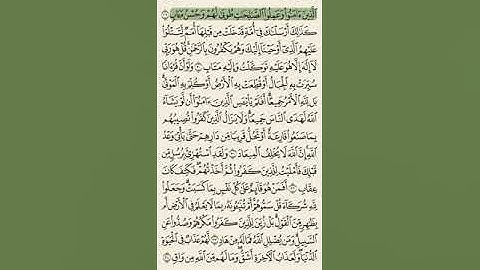 ٱلَّذِينَ ءَامَنُوا۟ وَعَمِلُوا۟ ٱلصَّٰلِحَٰتِ طُوبَىٰ لَهُمْ وَحُسْنُ مَـَٔابٍ ٢٩
كَذَٰلِكَ أَرْسَلْنَٰكَ فِىٓ أُمَّةٍ قَدْ خَلَتْ مِن قَبْلِهَآ أُمَمٌ لِّتَتْلُوَا۟
عَلَيْهِمُ ٱلَّذِىٓ أَوْحَيْنَآ إِلَيْكَ وَهُمْ يَكْفُرُونَ بِٱلرَّحْمَٰنِ قُلْ هُوَ رَبِّى
لَآ إِلَٰهَ إِلَّا هُوَ عَلَيْهِ تَوَكَّلْتُ وَإِلَيْهِ مَتَابِ ٣٠ وَلَوْ أَنَّ قُرْءَانًا
سُيِّرَتْ بِهِ ٱلْجِبَالُ أَوْ قُطِّعَتْ بِهِ ٱلْأَرْضُ أَوْ كُلِّمَ بِهِ ٱلْمَوْتَىٰ
بَل لِّلَّهِ ٱلْأَمْرُ جَمِيعًا أَفَلَمْ يَا۟يْـَٔسِ ٱلَّذِينَ ءَامَنُوٓا۟ أَن لَّوْ يَشَآءُ
ٱللَّهُ لَهَدَى ٱلنَّاسَ جَمِيعًا وَلَا يَزَالُ ٱلَّذِينَ كَفَرُوا۟ تُصِيبُهُم
بِمَا صَنَعُوا۟ قَارِعَةٌ أَوْ تَحُلُّ قَرِيبًا مِّن دَارِهِمْ حَتَّىٰ يَأْتِىَ وَعْدُ
ٱللَّهِ إِنَّ ٱللَّهَ لَا يُخْلِفُ ٱلْمِيعَادَ ٣١ وَلَقَدِ ٱسْتُهْزِئَ بِرُسُلٍ مِّن
قَبْلِكَ فَأَمْلَيْتُ لِلَّذِينَ كَفَرُوا۟ ثُمَّ أَخَذْتُهُمْ فَكَيْفَ كَانَ
عِقَابِ ٣٢ أَفَمَنْ هُوَ قَآئِمٌ عَلَىٰ كُلِّ نَفْسٍۭ بِمَا كَسَبَتْ وَجَعَلُوا۟
لِلَّهِ شُرَكَآءَ قُلْ سَمُّوهُمْ أَمْ تُنَبِّـُٔونَهُۥ بِمَا لَا يَعْلَمُ فِى ٱلْأَرْضِ أَم
بِظَٰهِرٍ مِّنَ ٱلْقَوْلِ بَلْ زُيِّنَ لِلَّذِينَ كَفَرُوا۟ مَكْرُهُمْ وَصُدُّوا۟ عَنِ
ٱلسَّبِيلِ وَمَن يُضْلِلِ ٱللَّهُ فَمَا لَهُۥ مِنْ هَادٍ ٣٣ لَّهُمْ عَذَابٌ فِى ٱلْحَيَوٰةِ
ٱلدُّنْيَا وَلَعَذَابُ ٱلْـَٔاخِرَةِ أَشَقُّ وَمَا لَهُم مِّنَ ٱللَّهِ مِن وَاقٍ ٣٤